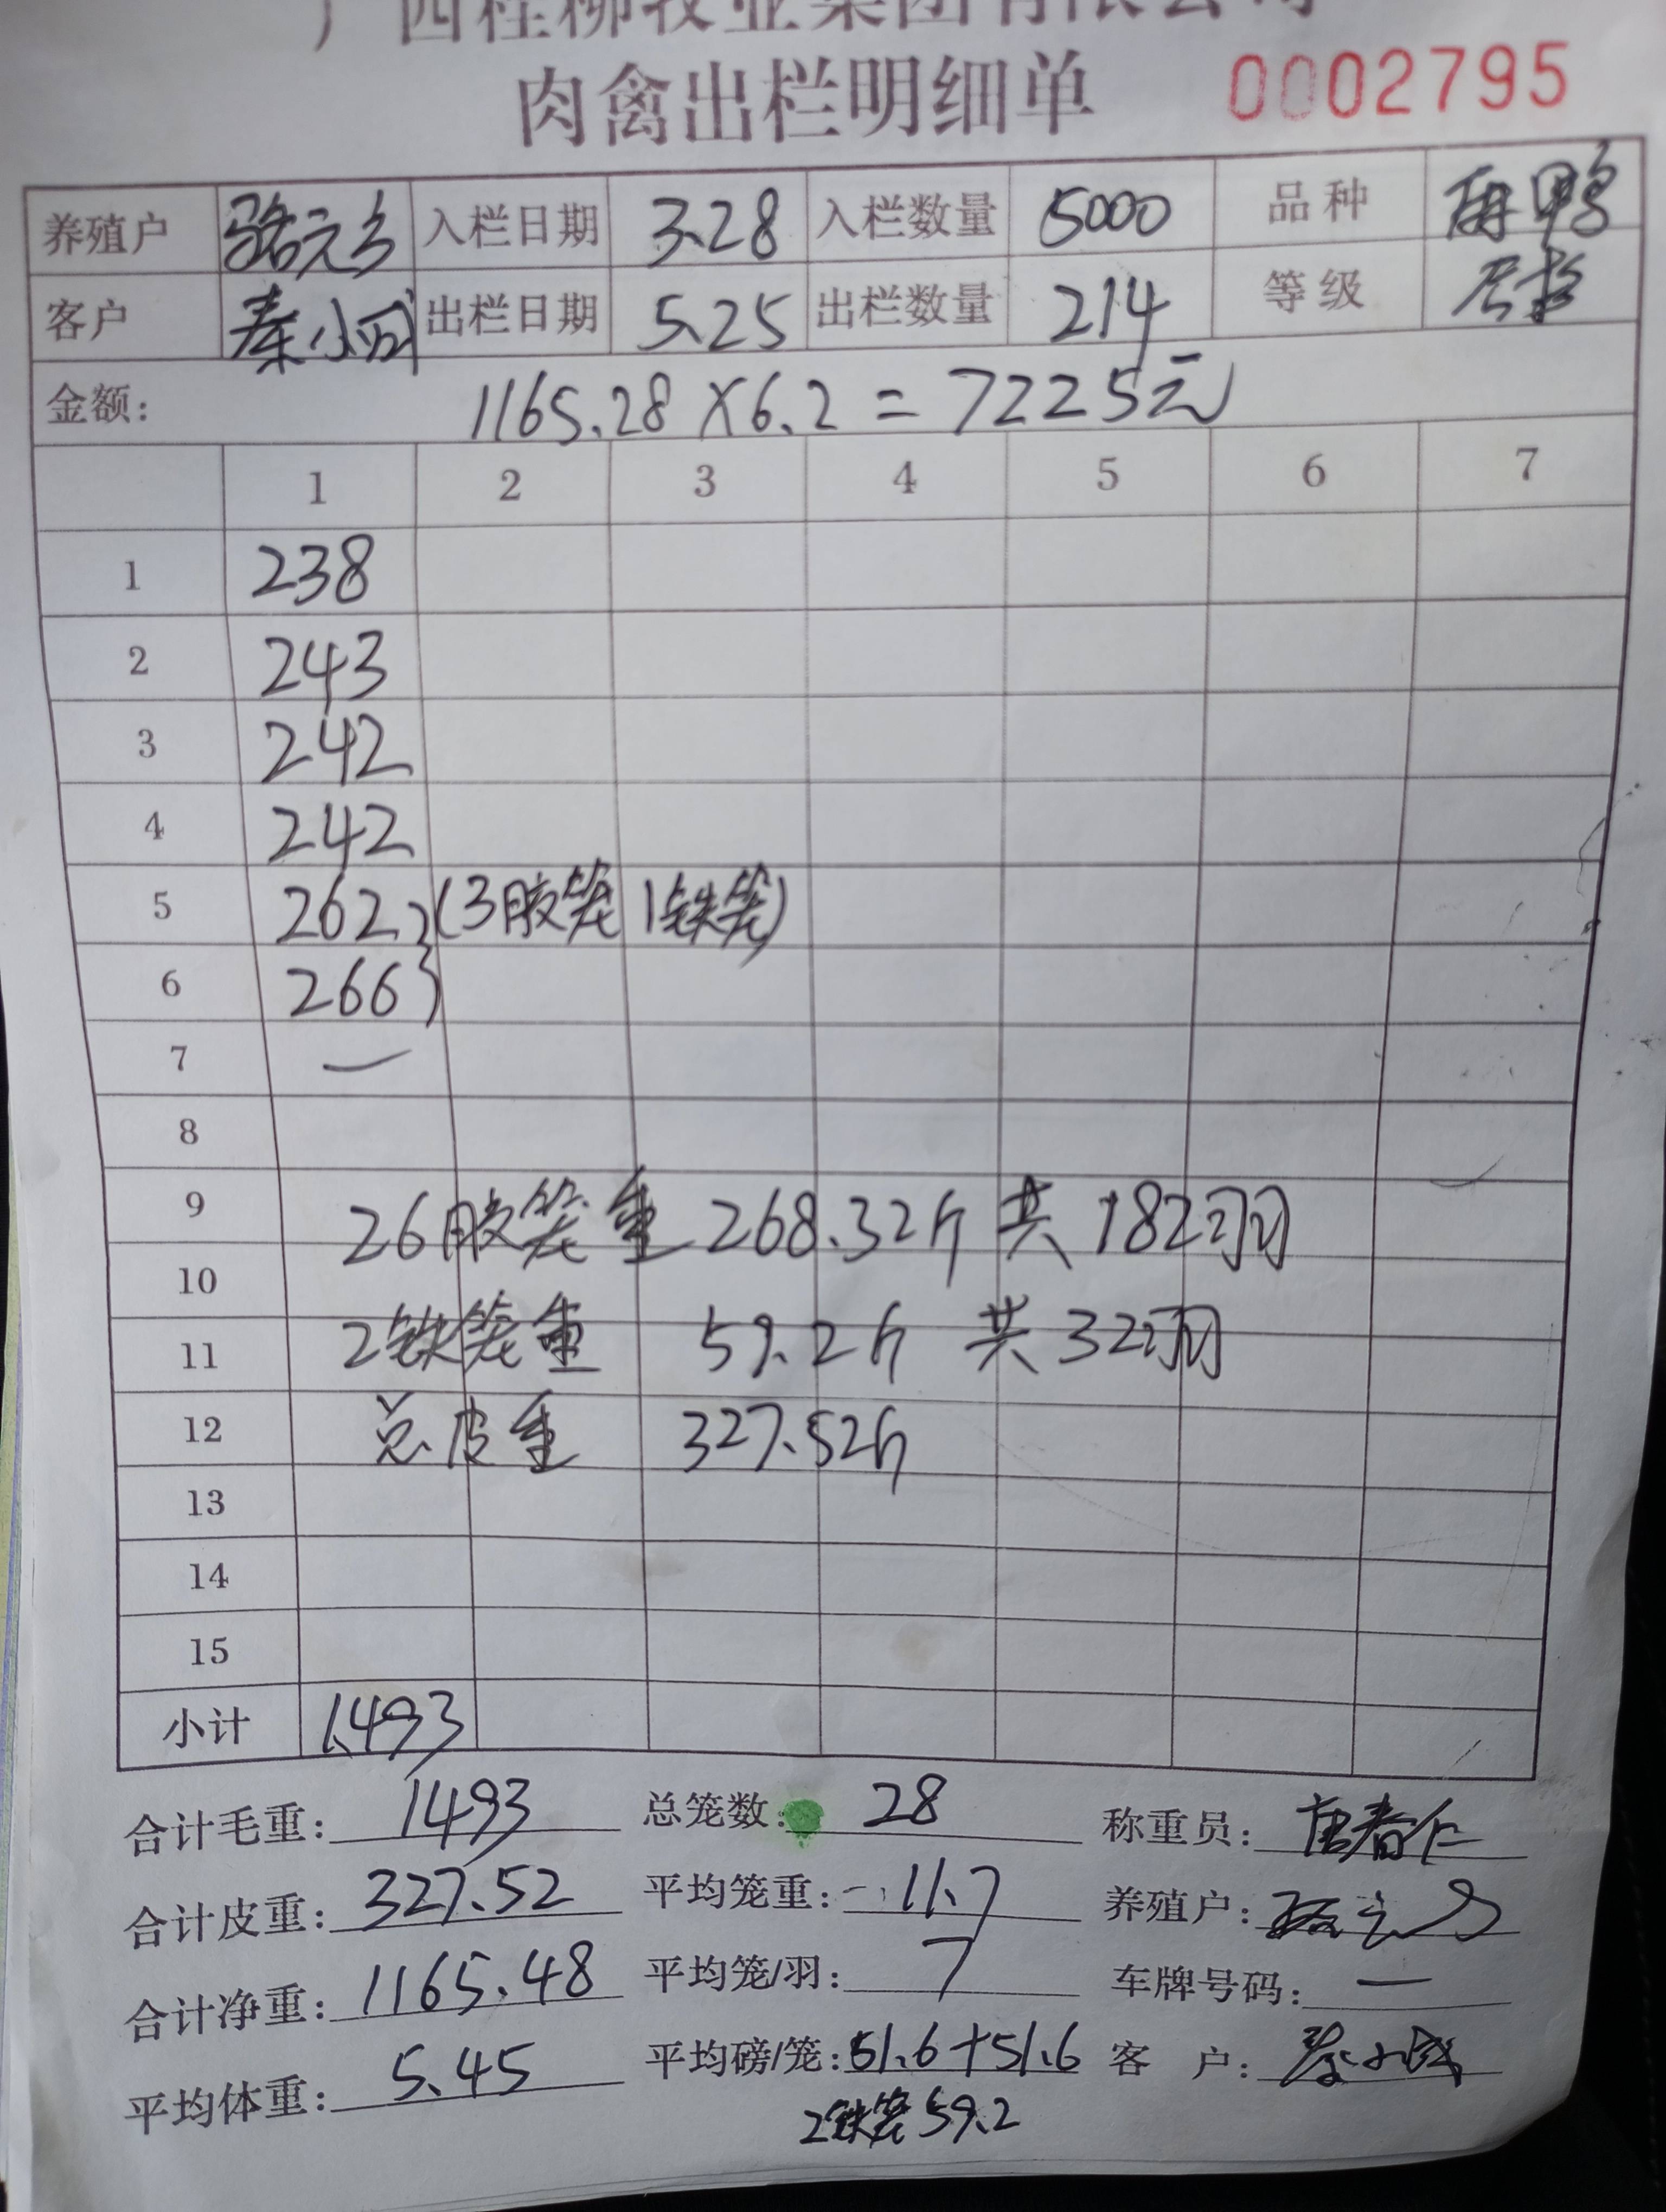 广西桂柳牧业集团有限公司
肉禽出栏明细单 0002795
养殖户 骆元乡 入栏日期 3.28 入栏数量 5000 品种 麻鸭
客户 秦小四 出栏日期 5.25 出栏数量 214 等级
金额: 1165.28×6.2=7225元
1 2 3 4 5 6 7
1 238
2 243
3 242
4 242
5 262 (3胶笼 1铁笼)
6 266
7 一
8
9 26胶笼重 268.32斤 共182羽
10
11 2铁笼重 59.2斤 共32羽
12 总皮重 327.52斤
13
14
15
小计 1493
合计毛重: 1493 总笼数: 28 称重员: 唐春仁
合计皮重: 327.52 平均笼重: 11.7 养殖户:
合计净重: 1165.48 平均笼/羽: 7 车牌号码: 一
平均体重: 5.45 平均磅/笼: 51.6+51.6 客 户:
2铁笼59.2